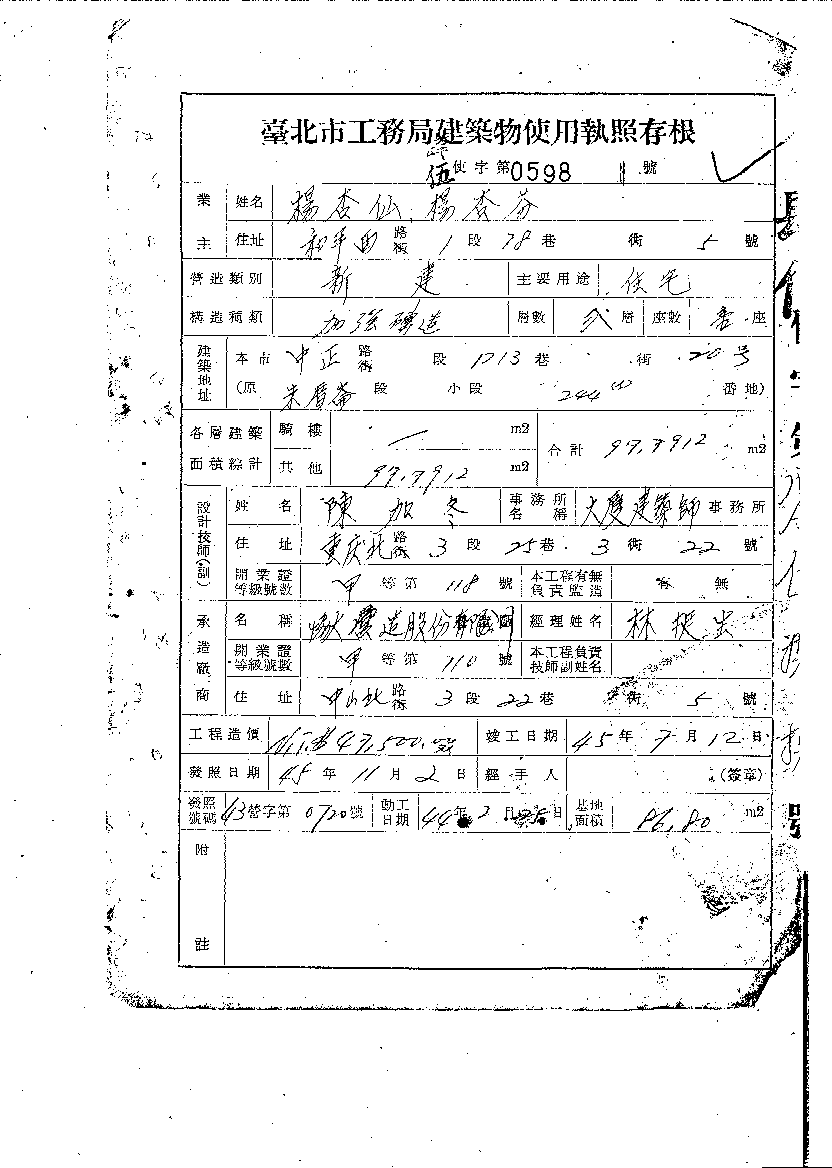 臺北市工務局建築物使用執照存根
伍使字第0598號
業主 姓名 楊杏仙、楊杏芬
住址 和平西路街 1段78巷 衖5號
營造類別 新建 主要用途 住宅
構造種類 加強磚造 層數 弍層 座數 壹座
建築地址 本市 中正路街 段1213巷 衖20号
(原 朱厝崙段 小段 244 番地)
各層建築面積綜計 騎樓 — m2 合計 97.7912 m2
其他 97.7912 m2
設計技師(副) 姓名 陳加冬 事務所名稱 大慶建築師事務所
住址 重庆北路街 3段25巷3衖22號
開業證等級號數 甲等第118號 本工程有無負責監造 無
承造廠商 名稱 營造股份有限公司 經理姓名 林挺出
開業證等級號數 甲等第110號 本工程負責技師副姓名
住址 中山北路街 3段22巷 衖5號
工程造價 NT$47,500.00 竣工日期 45年7月12日
發照日期 45年11月2日 經手人 (簽章)
發照號碼 43營字第0720號 動工日期 44年2月 日 基地面積 86.80 m2
附註